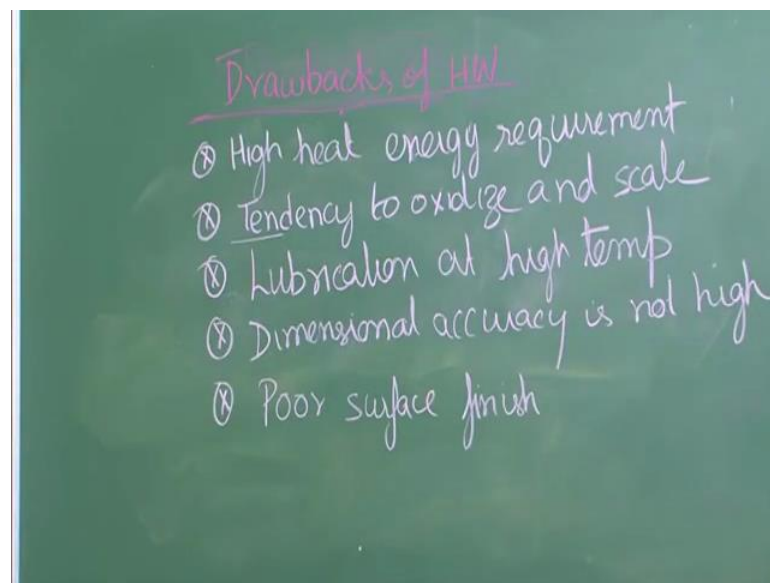 Drawbacks of HW
ⓧ High heat energy requirement
ⓧ Tendency to oxidize and scale
ⓧ Lubrication at high temp
ⓧ Dimensional accuracy is not high
ⓧ Poor surface finish